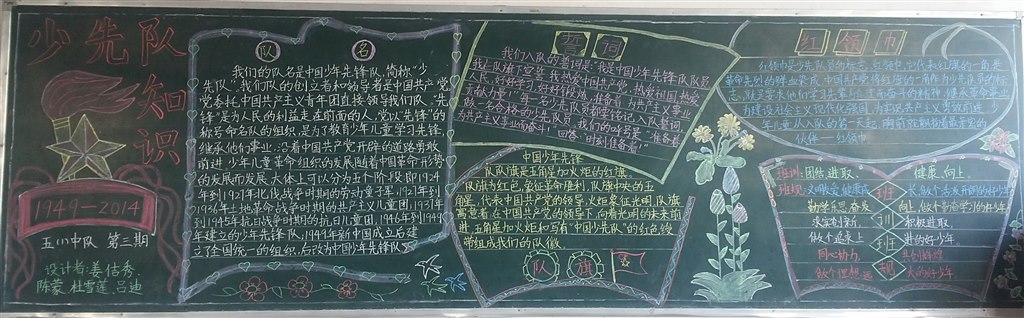 少先队
知识
1949-2014
五(1)中队 第三期
设计者:姜佶秀
陈蒙 杜雪莲 吕迪
队名
我们的队名是中国少年先锋队,简称“少
先队”。我们队的创立者和领导者是中国共产党,
党委托中国共产主义青年团直接领导我们队。“先
锋”是为人民的利益走在前面的人。党以先锋的
称号命名队的组织,是为了教育少年儿童学习先锋,
继承他们事业,沿着中国共产党开辟的道路勇敢
前进。少年儿童革命组织的发展随着中国革命形势
的发展而发展,大体上可以分为五个阶段,即1924
年到1927年北伐战争时期的劳动童子军,1927年到
1936年土地革命战争时期的共产主义儿童团,1937年
到1945年抗日战争时期的抗日儿童团,1946年到1949
年建立的少年先锋队,1949年新中国成立后建
立了全国统一的组织,后改为中国少年先锋队。
誓词
我们入队的誓词是:“我是中国少年先锋队队员
我在队旗下宣誓:我热爱中国共产党,热爱祖国,热爱
人民,好好学习,好好锻炼,准备着:为共产主义事业
贡献力量!”每一名少先队员都要牢记入队誓词,
做一名合格的少先队员。我们的呼号是:“准备着:
为共产主义事业而奋斗!”回答:“时刻准备着!”
中国少年先锋
队队旗是五角星加火炬的红旗。
队旗为红色,象征革命胜利,队旗中央的五
角星,代表中国共产党的领导,火炬象征光明,队旗
寓意着在中国共产党的领导下,向着光明的未来前
进。五角星加火炬和写有“中国少先队”的红色绶
带组成我们的队徽。
队旗
红领巾
红领巾是少先队员的标志,红领巾,它代表红旗的一角,是
革命先烈的鲜血染成
伙伴——红领巾
班训:团结进取、健康、向上。
班规:
班训班规
勤学乐思
求实创新,积极进取,
做个追求上进的好少年
同心协力,共创辉煌
做个理想远大的好少年